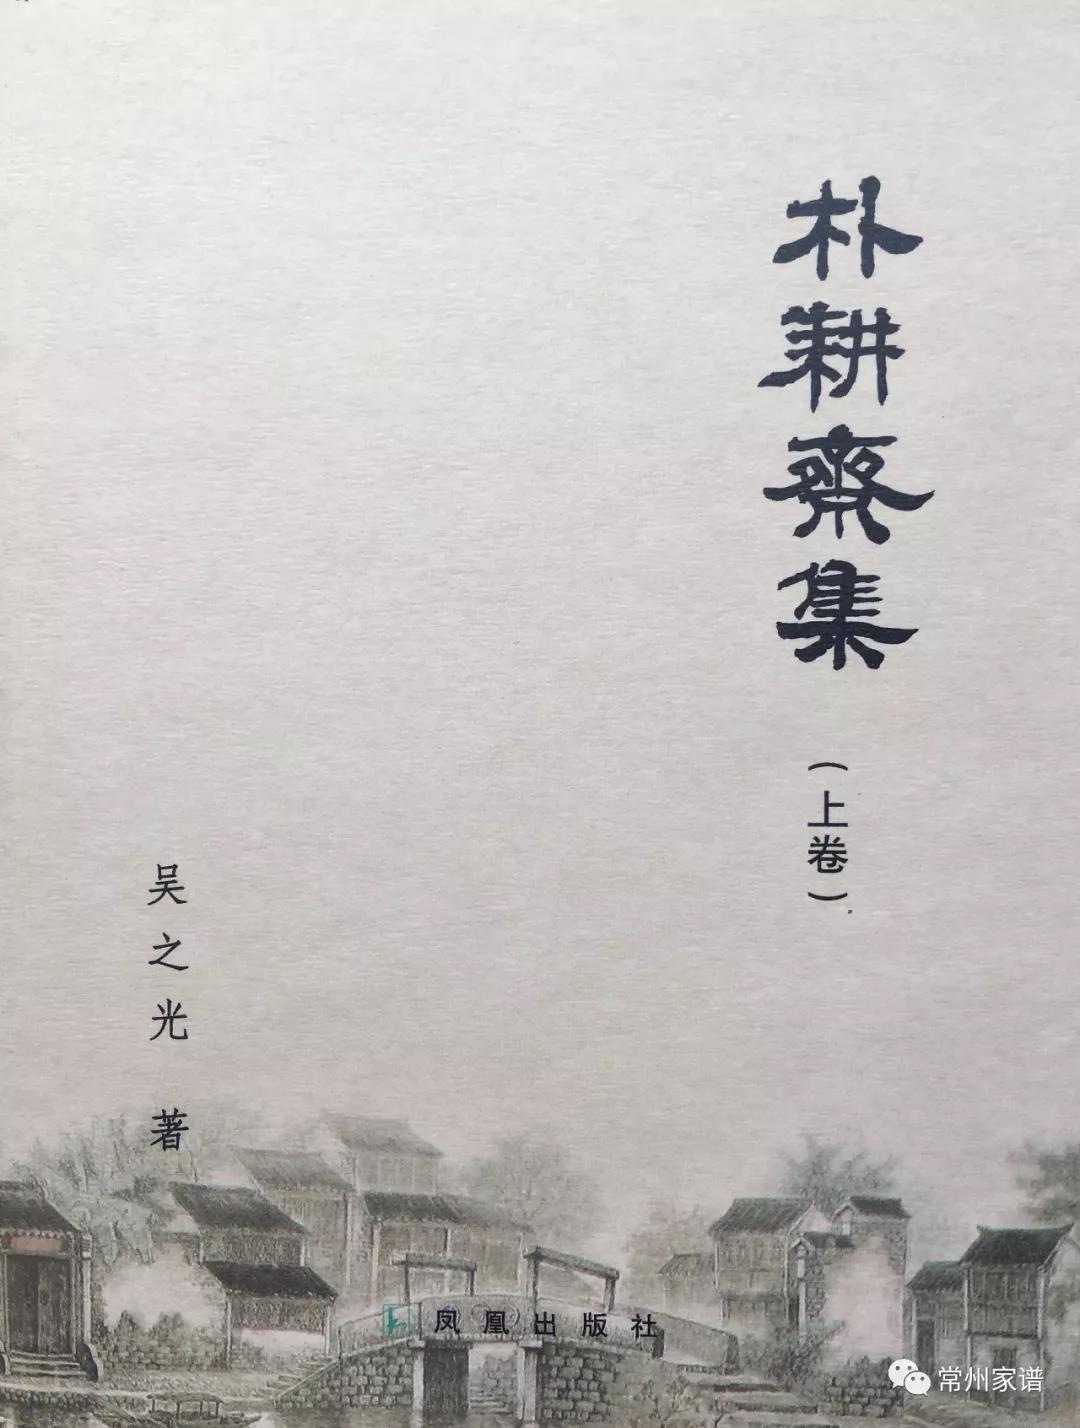 朴耕斋集
（上卷）
吴之光 著
凤凰出版社
常州家谱